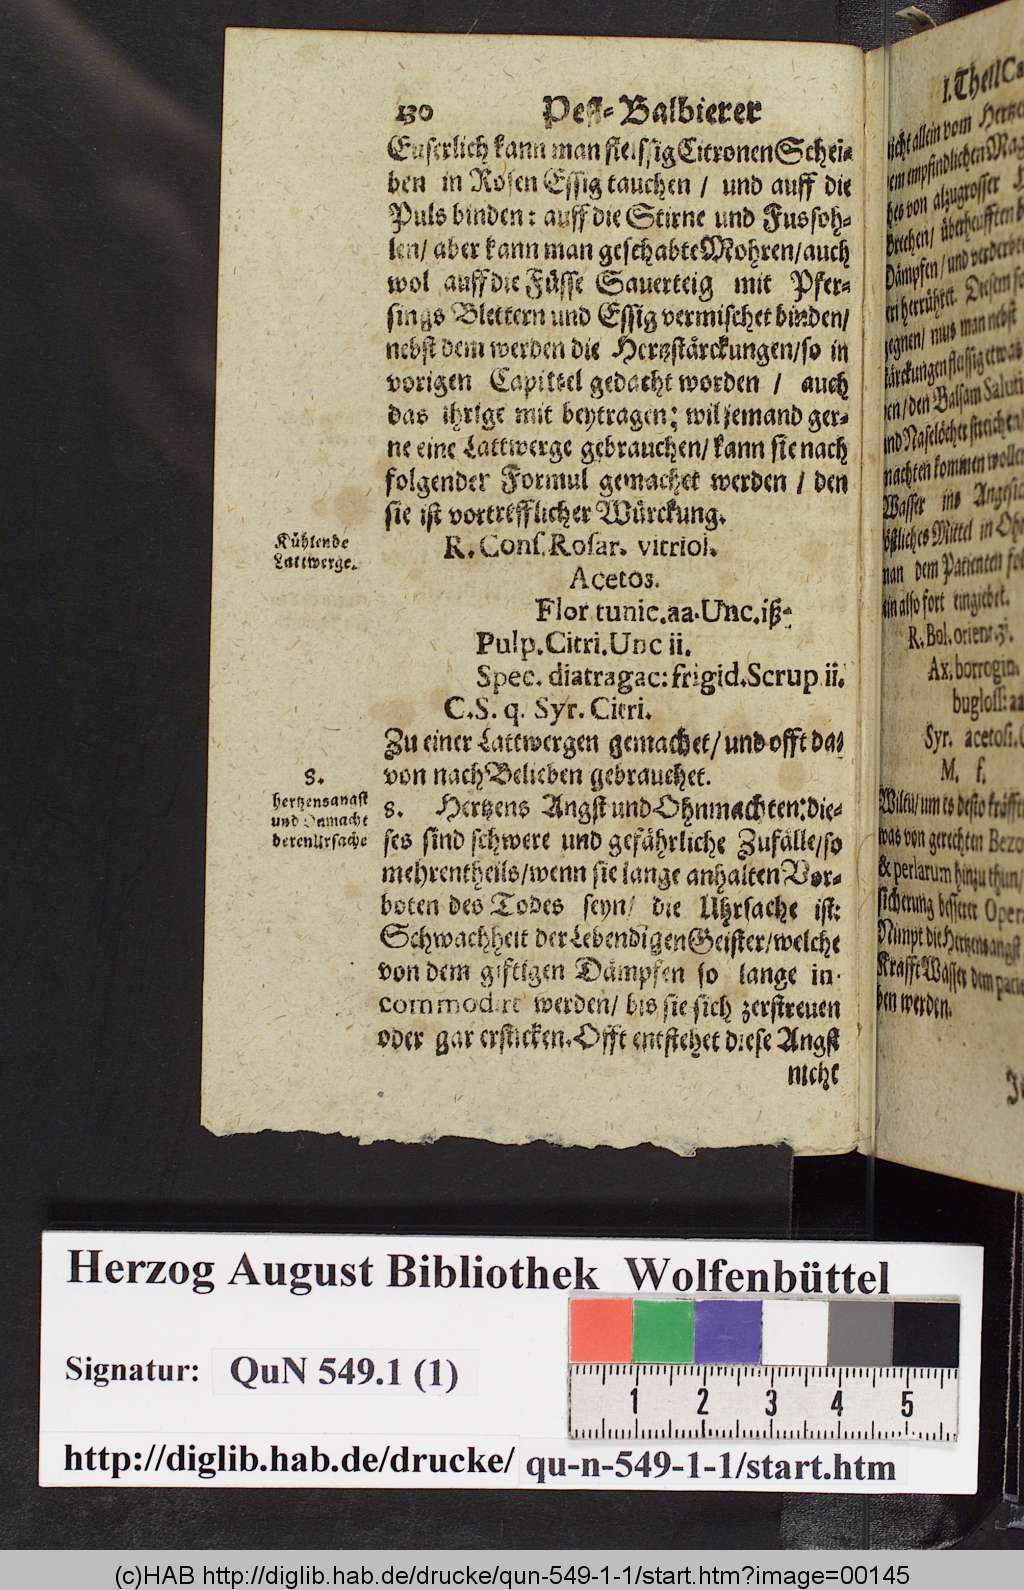 130 Pest-Balbierer
Euserlich kann man fleissig Citronen Schei-
ben in Rosen Essig tauchen / und auff die
Puls binden: auff die Stirne und Fussoh-
len/ aber kann man geschabte Mohren/auch
wol auff die Füsse Sauerteig mit Pfer-
sings Blettern und Essig vermischet binden/
nebst dem werden die Hertzstärckungen/so in
vorigen Capittel gedacht worden / auch
das ihrige mit beytragen; wil jemand ger-
ne eine Lattwerge gebrauchen/ kann sie nach
folgender Formul gemachet werden / den
sie ist vortrefflicher Würckung.
Kühlende
Lattwerge.
R. Conſ. Roſar. vitriol.
Acetos.
Flor tunic. aa. Unc. iß.
Pulp. Citri. Unc ii.
Spec. diatragac: frigid. Scrup ii.
C. S. q. Syr. Citri.
Zu einer Lattwergen gemachet/ und offt da-
von nach Belieben gebrauchet.
8.
hertzensangst
und Onmacht
deren Ursache
8. Hertzens Angst und Ohnmachten: die-
ses sind schwere und gefährliche Zufälle/so
mehrentheils/wenn sie lange anhalten Vor-
boten des Todes seyn/ die Uhrsache ist:
Schwachheit der Lebendigen Geister/welche
von dem giftigen Dämpfen so lange in-
commodiret werden/ bis sie sich zerstreuen
oder gar ersticken. Offt entstehet diese Angst
nicht
I. Theil Ca
nicht allein vom Hertze
em empfindlichen Mag
hes von alzugrosser
Brechen/ überheufften
Dämpfen/ und verderbe
eri herrühtet. Diesem
egnen/ mus man nebst
tärckungen fleissig etwas
en/ den Balsam Saluti
und Naselöcher streichen
machten kommen wollen
Wasser ins Angesic
östliches Mittel in Oh
man dem Patienten
ein also fort eingiebet.
R. Bol. orient. ʒ.
Ax. borrogin.
bugloſſ: aa
Syr. acetoſi.
M. f.
Wiltu/ um es desto kräffti
was von gerechten Bezo
& perlarum hinzu thun/
sicherung besserer Opera
Nimpt die Hertzensangst
Krafft Wasser dem patie
ben werden.
Herzog August Bibliothek Wolfenbüttel
Signatur: QuN 549.1 (1)
1 2 3 4 5
http://diglib.hab.de/drucke/ qu-n-549-1-1/start.htm
(c)HAB http://diglib.hab.de/drucke/qun-549-1-1/start.htm?image=00145